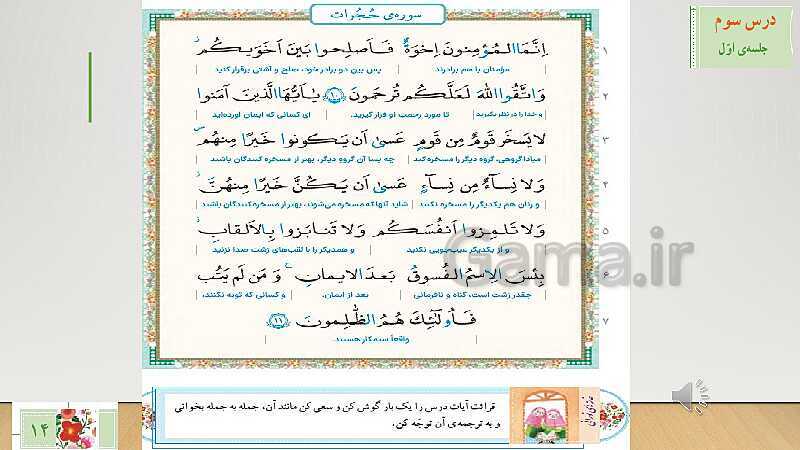 درس سوم
جلسه‌ی اوّل
سوره‌ی حُجُرات
۱
اِنَّمَا الـمُؤمِنونَ اِخوَةٌ فَـاَصلِحوا بَينَ اَخَوَيـكُم
مؤمنان با هم برادرند. پس بین دو برادر خود، صلح و آشتی برقرار کنید
۲
وَ اتَّقُوا اللّٰهَ لَعَلَّكُم تُرحَمونَ ۱۰ يٰاَيُّهَا الَّذينَ آمَنوا
و خدا را در نظر بگیرید تا مورد رحمت او قرار گیرید. ای کسانی که ایمان آورده‌اید
۳
لا يَسخَر قَومٌ مِن قَومٍ عَسىٰ اَن يَـكونوا خَيرًا مِنهُم
مبادا گروهی، گروه دیگر را مسخره کند چه بسا آن گروه دیگر، بهتر از مسخره کنندگان باشند
۴
وَ لا نِسـآءٌ مِن نِسـآءٍ عَسىٰ اَن يَـكُنَّ خَيرًا مِنهُنَّ
و زنان هم یکدیگر را مسخره نکنند شاید آنها که مسخره می‌شوند، بهتر از مسخره کنندگان باشند
۵
وَ لا تَلمِزوا اَنفُسَكُم وَ لا تَنابَزوا بِالاَلقابِ
و از یکدیگر عیب‌جویی نکنید و همدیگر را با لقب‌های زشت صدا نزنید
۶
بِئسَ الاِسمُ الـفُسوقُ بَعدَ الايمانِ وَ مَن لَم يَتُب
چقدر زشت است، گناه و نافرمانی بعد از ایمان. و کسانی که توبه نکنند،
۷
فَـاُولـٰئِكَ هُمُ الظّٰلِمونَ ۱۱
واقعاً ستمکار هستند.
Gama.ir
قرائت آیات درس را یک بار گوش کن و سعی کن مانند آن، جمله به جمله بخوانی
و به ترجمه‌ی آن توجّه کن.
۱۴